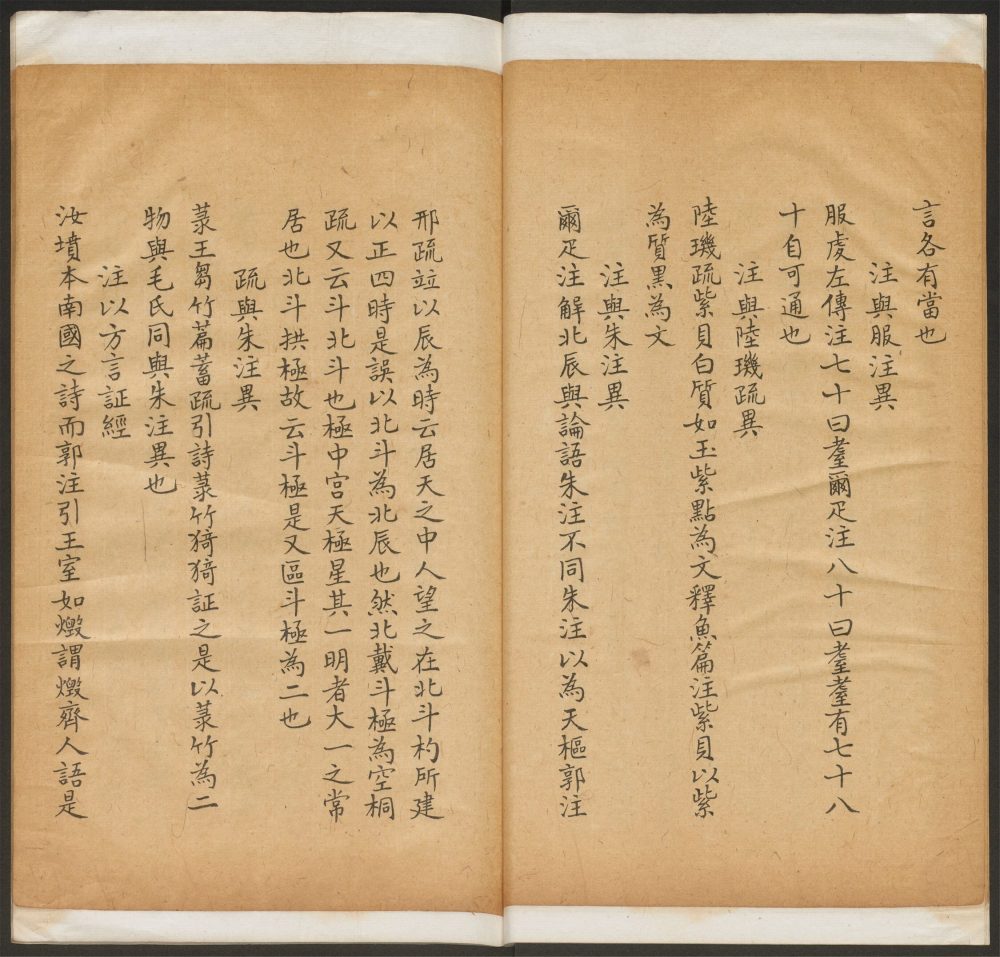 言各有當也
注與服注異
服虔左傳注七十曰耋爾疋注八十曰耋耋有七十八
十自可通也
注與陸璣疏異
陸璣疏紫貝白質如玉紫點為文釋魚篇注紫貝以紫
為質黑為文
注與朱注異
爾疋注解北辰與論語朱注不同朱注以為天樞郭注
邢疏竝以辰為時云居天之中人望之在北斗杓所建
以正四時是誤以北斗為北辰也然北戴斗極為空桐
疏又云斗北斗也極中宮天極星其一明者大一之常
居也北斗拱極故云斗極是又區斗極為二也
疏與朱注異
菉王芻竹萹蓄疏引詩菉竹猗猗証之是以菉竹為二
物與毛氏同與朱注異也
注以方言証經
汝墳本南國之詩而郭注引王室如燬謂燬齊人語是